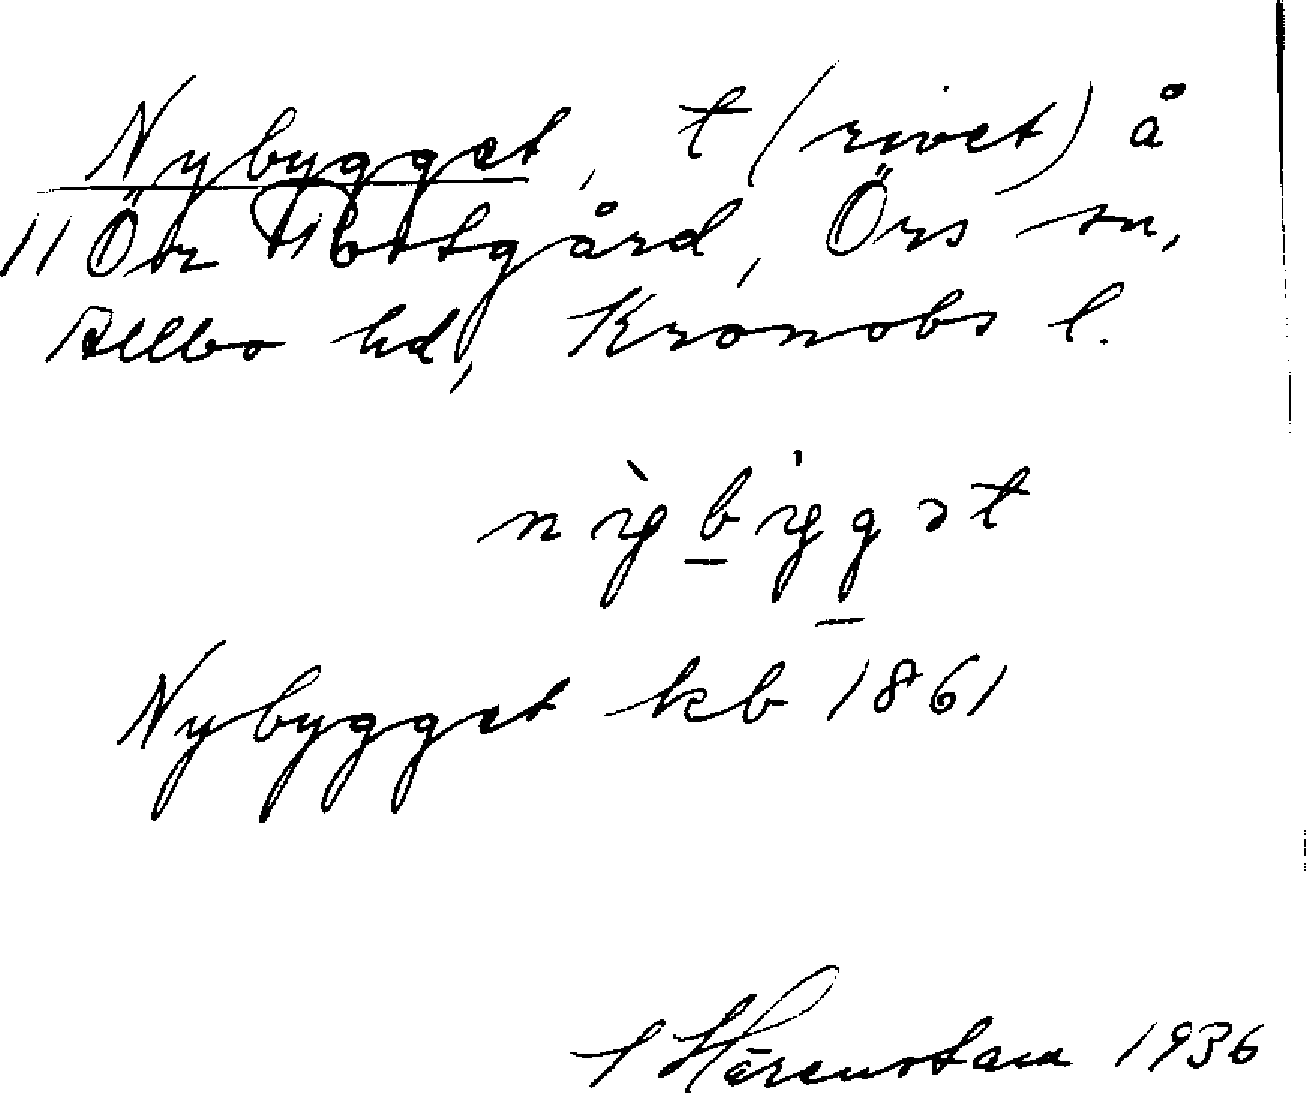 Nybygget, t (rivet) å
11 Ör Prostgård, Örs sn,
Allbo hd, Kronobs l.
nỳbyg̱gət
Nybygget kb 1861
Härenstam 1936